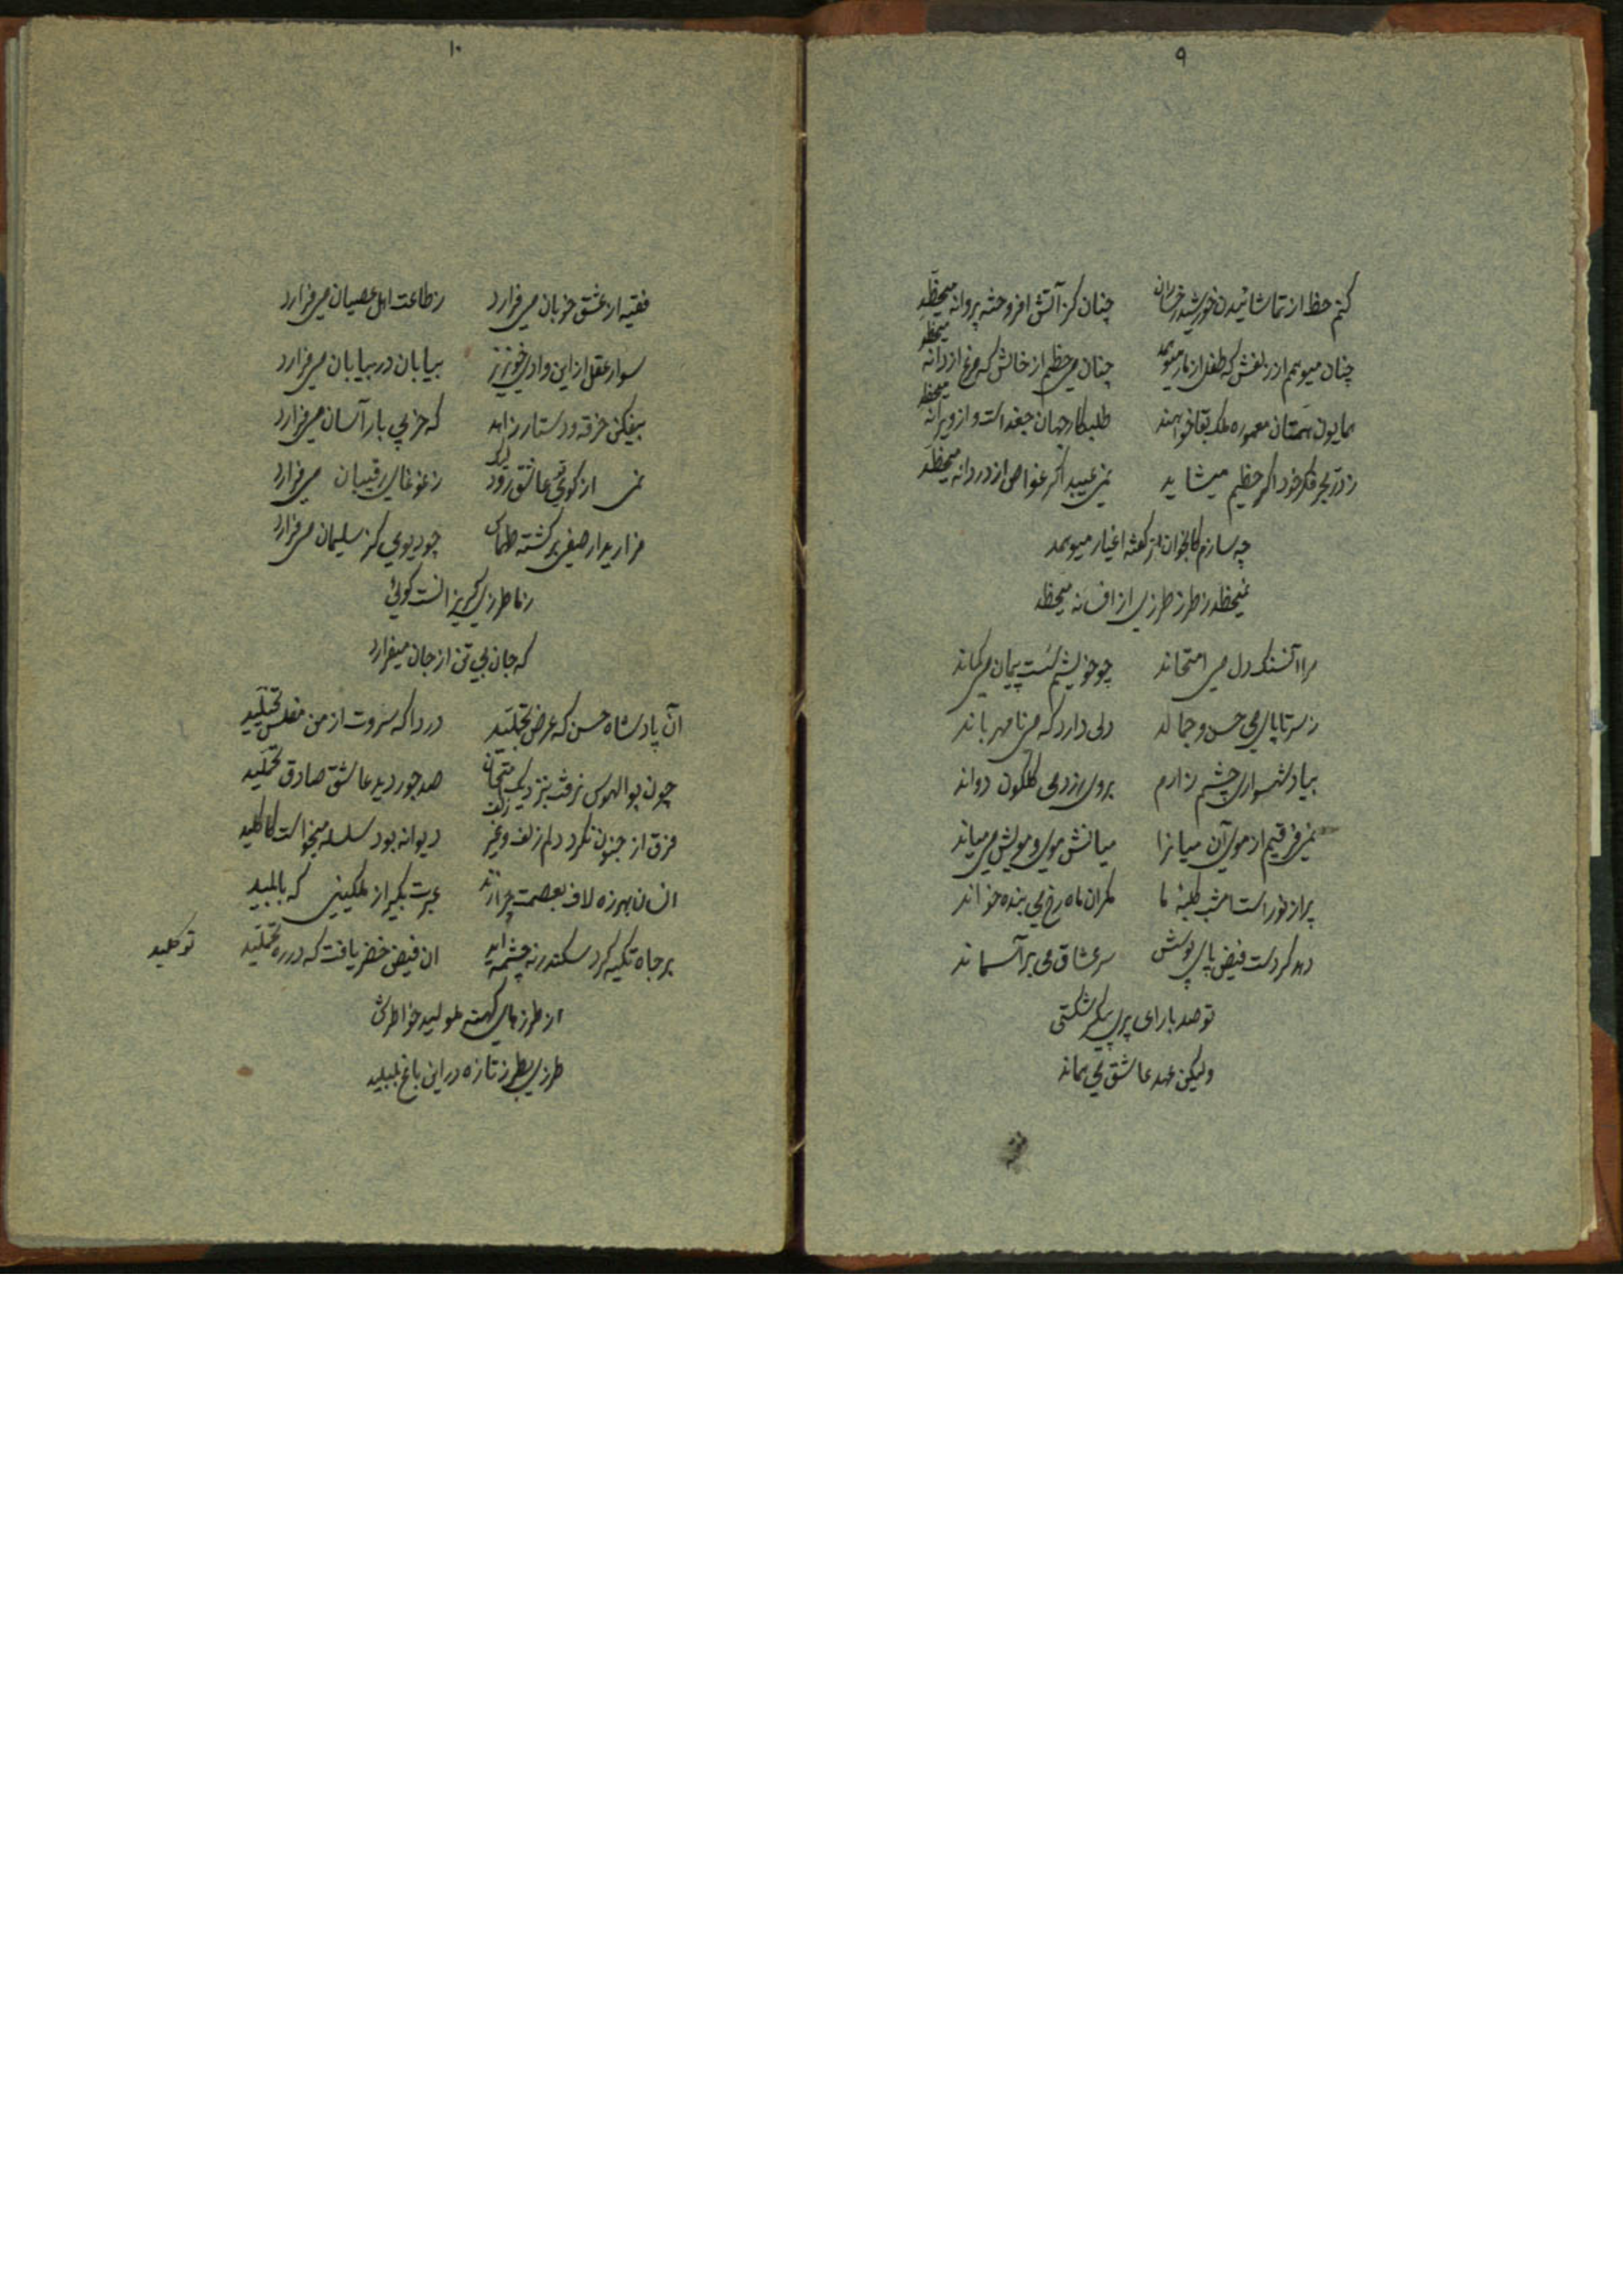 ۹
کنم حظ از تماشائیدن خورشید رخساران چنان کز آتش افروخته پروانه میحظد
چنان میوهمم از زلفش که طفل از مار میوهمد چنان می حظم از خالش که مرغ از دانه میحظد
همایون همتان معموره ملک بقا خواهند طلبکار جهان جغد است و از ویرانه میحظد
ز در بحر فکر خود اگر حظیم میشاید نمی عیبد اگر غواص از دردانه میحظد
چه سازم کالخوان از کفته اغیار میوهمد
نمیحظد ز طرز طرزی از افسانه میحظد
مرا آنسنک دل می امتحاند چو خویشم سست پیمان می کماند
ز سر تا پای می حسن و جمالد دلی دارد که می نامهرباند
بیاد شهسواری چشم زارم بروی زردمی کلکون دواند
نمی فرقیم از موی آن میانرا میانش موی و مویش می میاند
پر از نور است امشب کلبهٔ ما مگر آن ماه رخ می بنده خواند
دهد کر دست فیض پای بوسش سر عشاق می بر آسماند
تو صد بار ای پری پیکر شکستی
ولیکن عهد عاشق می بماند
۱۰
فقیه از عشق خوبان می فرارد ز طاعت اهل عصیان می فرارد
سوار عقل از این وادی خونریز بیابان در بیابان می فرارد
بیفکن خرقه و دستار زاهد که خر بی بار آسان می فرارد
نمی از کوی تو عاشق رود لیک ز غوغای رقیبان می فرارد
فرارید از صفیر کشته طهماس چو دیوی کز سلیمان می فرارد
ز ما طرزی کریزانست کوئی
که جان بی تن از جان میفرارد
آن پادشاه حسن که عرض تجملید دردا که ثروت از من مفلس تخیلید
چون بوالهوس نرفت بنزدیک متحان صد جور دید عاشق صادق تحملید
فرق از جنون نکرد دلم زلف و غیر زلف دیوانه بود سلسله میخواست کاکلید
انسان بهرزه لاف بعصمت چرا زند عبرت بکیر از ملکینی که بابلید
بر جاه تکیه کرد سکندر نه چشمه اید آن فیض خضر یافت که در ره توکلید
از طرزهای کهنه ملولید خواطرش
طرزی بطرز تازه در این باغ بلبلید